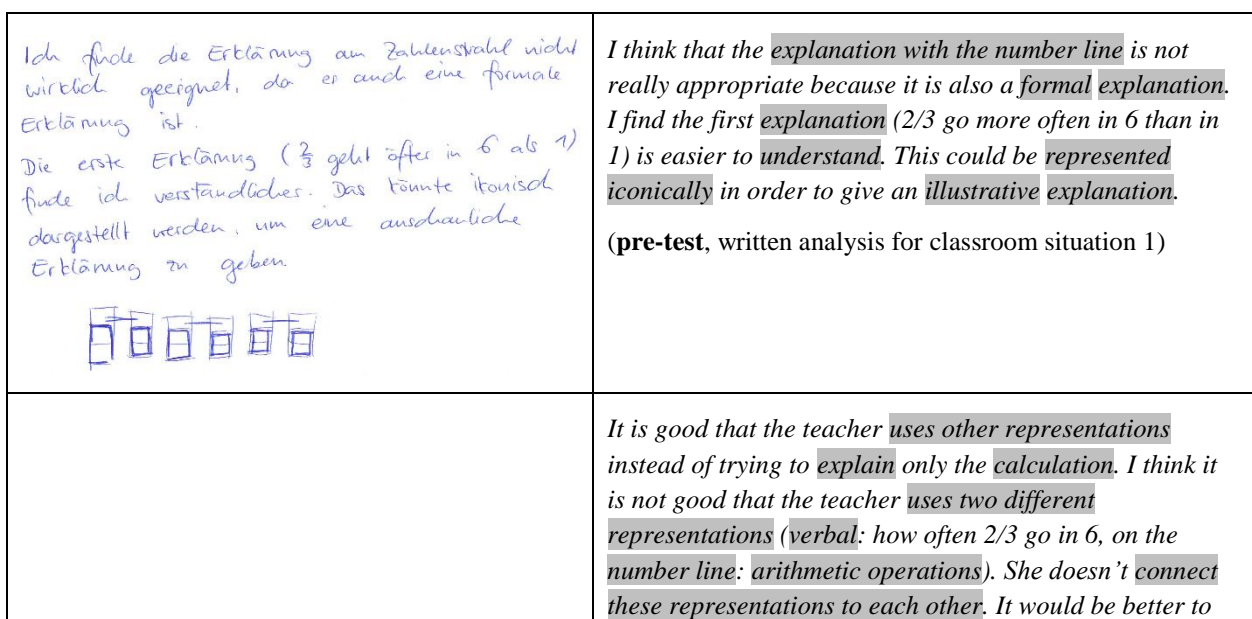 Ich finde die Erklärung am Zahlenstrahl nicht
wirklich geeignet, da er auch eine formale
Erklärung ist.
Die erste Erklärung (2/3 geht öfter in 6 als 1)
finde ich verständlicher. Das könnte ikonisch
dargestellt werden, um eine anschauliche
Erklärung zu geben
I think that the explanation with the number line is not
really appropriate because it is also a formal explanation.
I find the first explanation (2/3 go more often in 6 than in
1) is easier to understand. This could be represented
iconically in order to give an illustrative explanation.
(pre-test, written analysis for classroom situation 1)
It is good that the teacher uses other representations
instead of trying to explain only the calculation. I think it
is not good that the teacher uses two different
representations (verbal: how often 2/3 go in 6, on the
number line: arithmetic operations). She doesn't connect
these representations to each other. It would be better to